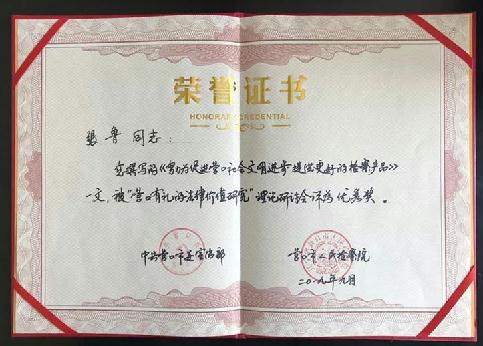 荣誉证书
HONORARY CREDENTIAL
鲁同志：
您撰写的《努力为促进营口社会文明进步提供更好的检察产品》
一文，被“营口有礼的法律价值研究”理论研讨会评为优秀奖。
中共营口市委宣传部 营口市人民检察院
二〇一九年九月